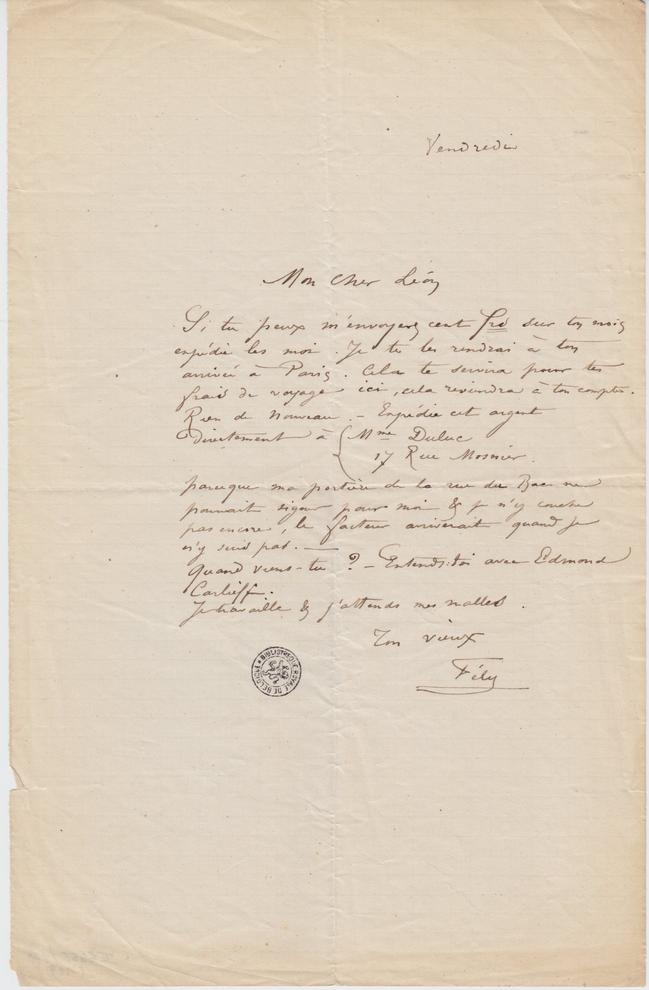 Vendredi
Mon cher Léon
Si tu peux m'envoyer cent frs sur ton mois
expédie les moi. Je te les rendrai à ton
arrivée à Paris. Cela te servira pour tes
frais de voyage ici, cela reviendra à ton compte.
Rien de nouveau. – Expédie cet argent
directement à { Mme Duluc
17 Rue Mosnier.
parceque ma portière de la rue du Bac ne
pourrait signer pour moi & je n'y couche
pas encore, le facteur arriverait quand je
n'y suis pas. —
Quand viens-tu ? – Entends-toi avec Edmond
Carlieff.
Je travaille & j'attends mes malles.
Ton vieux
Fély
BIBLIOTHEQUE ROYALE DE BELGIQUE